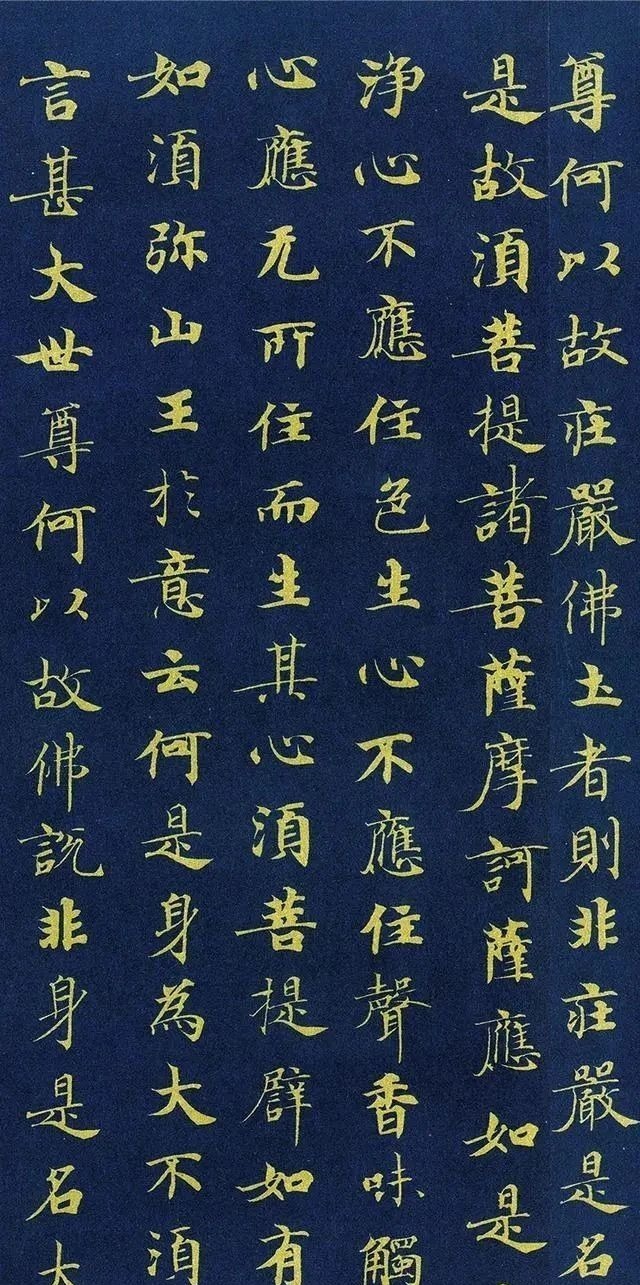 尊何以故庄嚴佛土者則非庄嚴是名
是故須菩提諸菩薩摩訶薩應如是
净心不應住色生心不應住聲香味觸
心應无所住而生其心須菩提譬如有
如須弥山王於意云何是身為大不須
言甚大世尊何以故佛説非身是名大